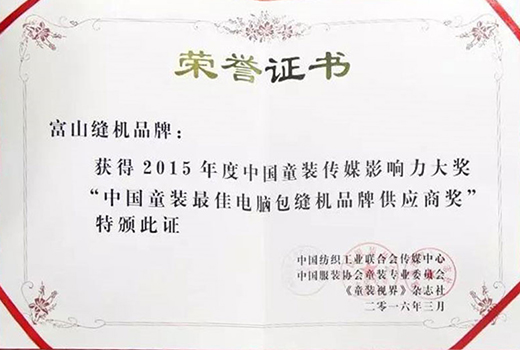 荣誉证书
富山缝机品牌：
获得2015年度中国童装传媒影响力大奖
“中国童装最佳电脑包缝机品牌供应商奖”
特颁此证
中国纺织工业联合会传媒中心
中国服装协会童装专业委员会
《童装视界》杂志社
二零一六年三月